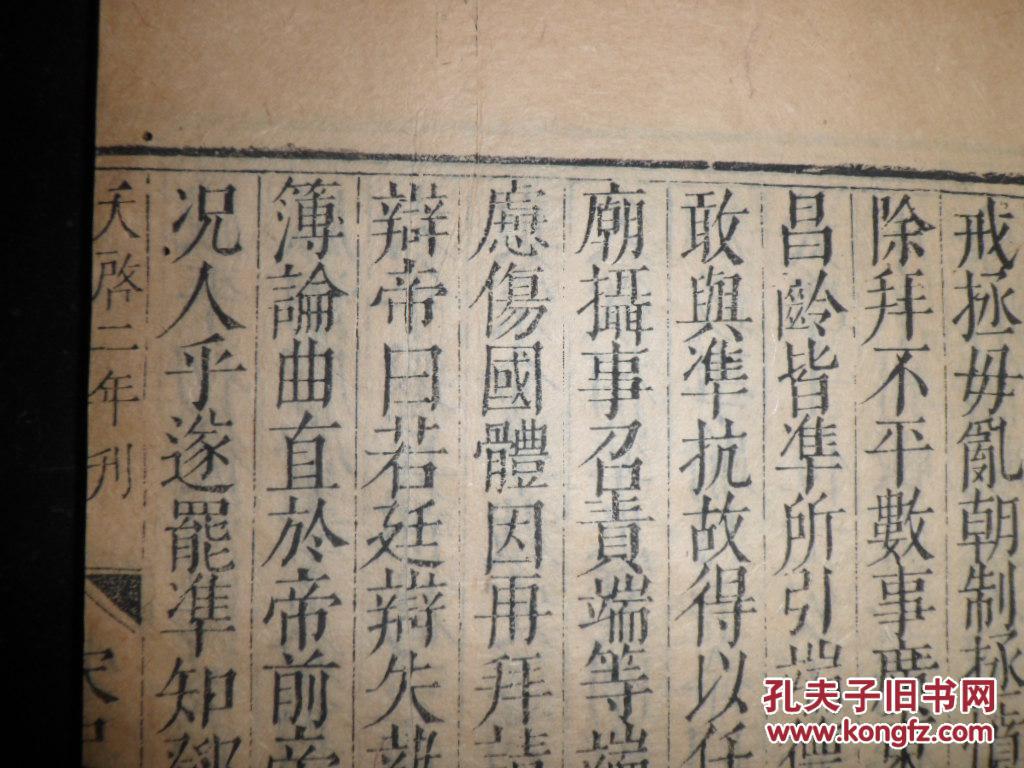 戒拯毋亂朝制拯
除拜不平數事廣
昌齡皆準所引端
敢與準抗故得以任
廟攝事召責端等端
慮傷國體因再拜請
辯帝曰若廷辯失執
簿論曲直於帝前帝
况人乎遂罷準知鄧
天啓二年刋
孔夫子旧书网
www.kongfz.com